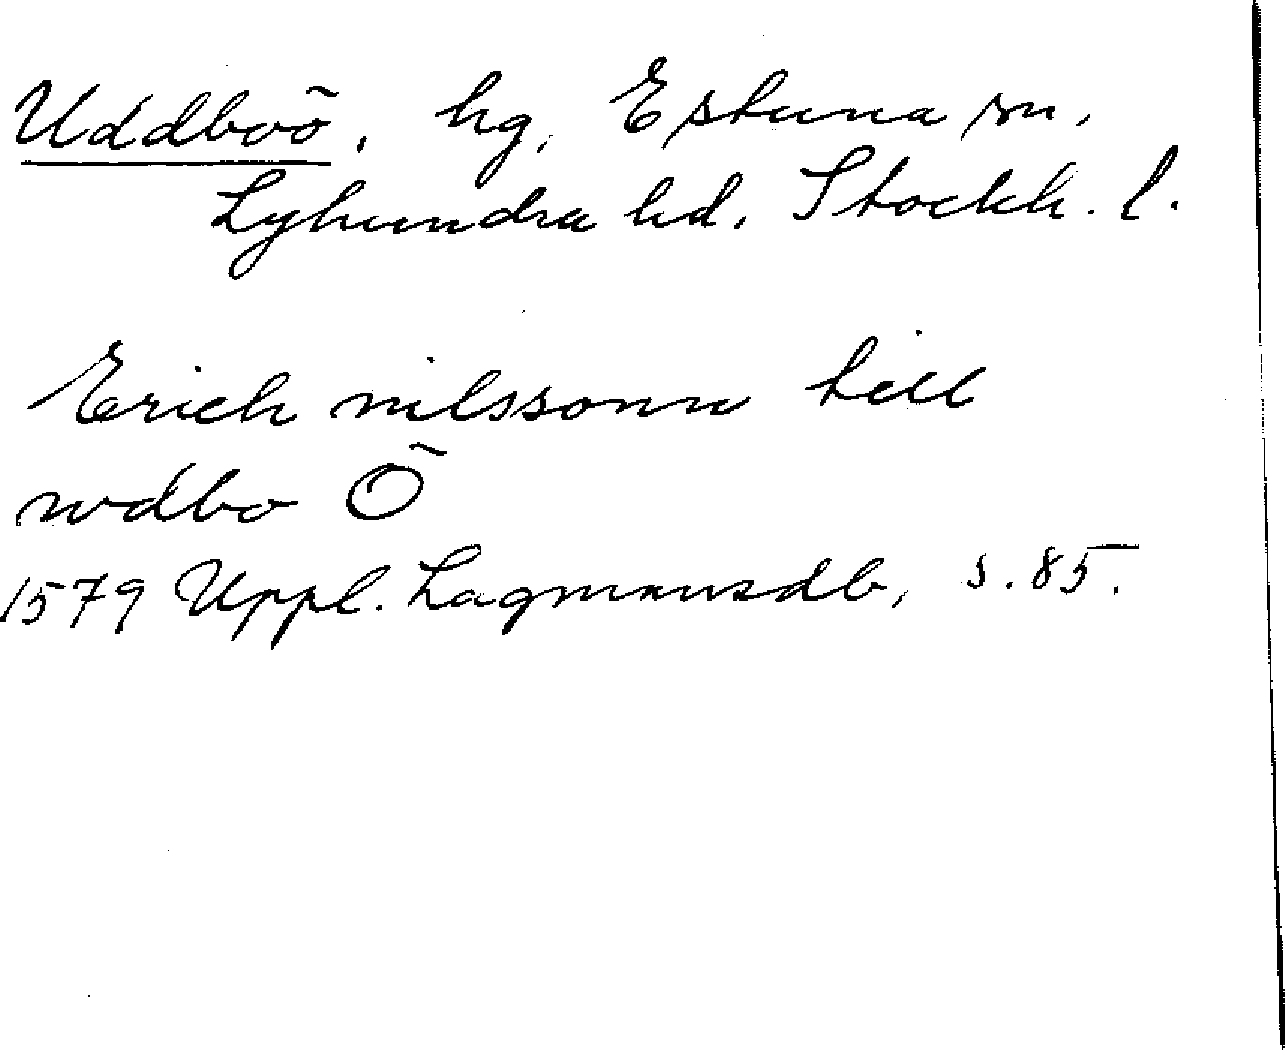 Uddboö, hg, Estuna sn,
Lyhundra hd. Stockh. l.
Erich nilssonn till
wdbo Ö
1579 Uppl. Lagmansdb, s. 85.